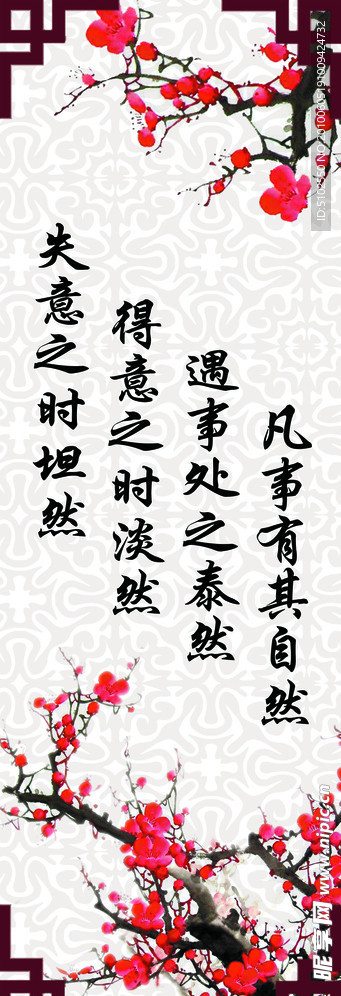 凡事有其自然
遇事处之泰然
得意之时淡然
失意之时坦然
昵享网 www.nipic.cn